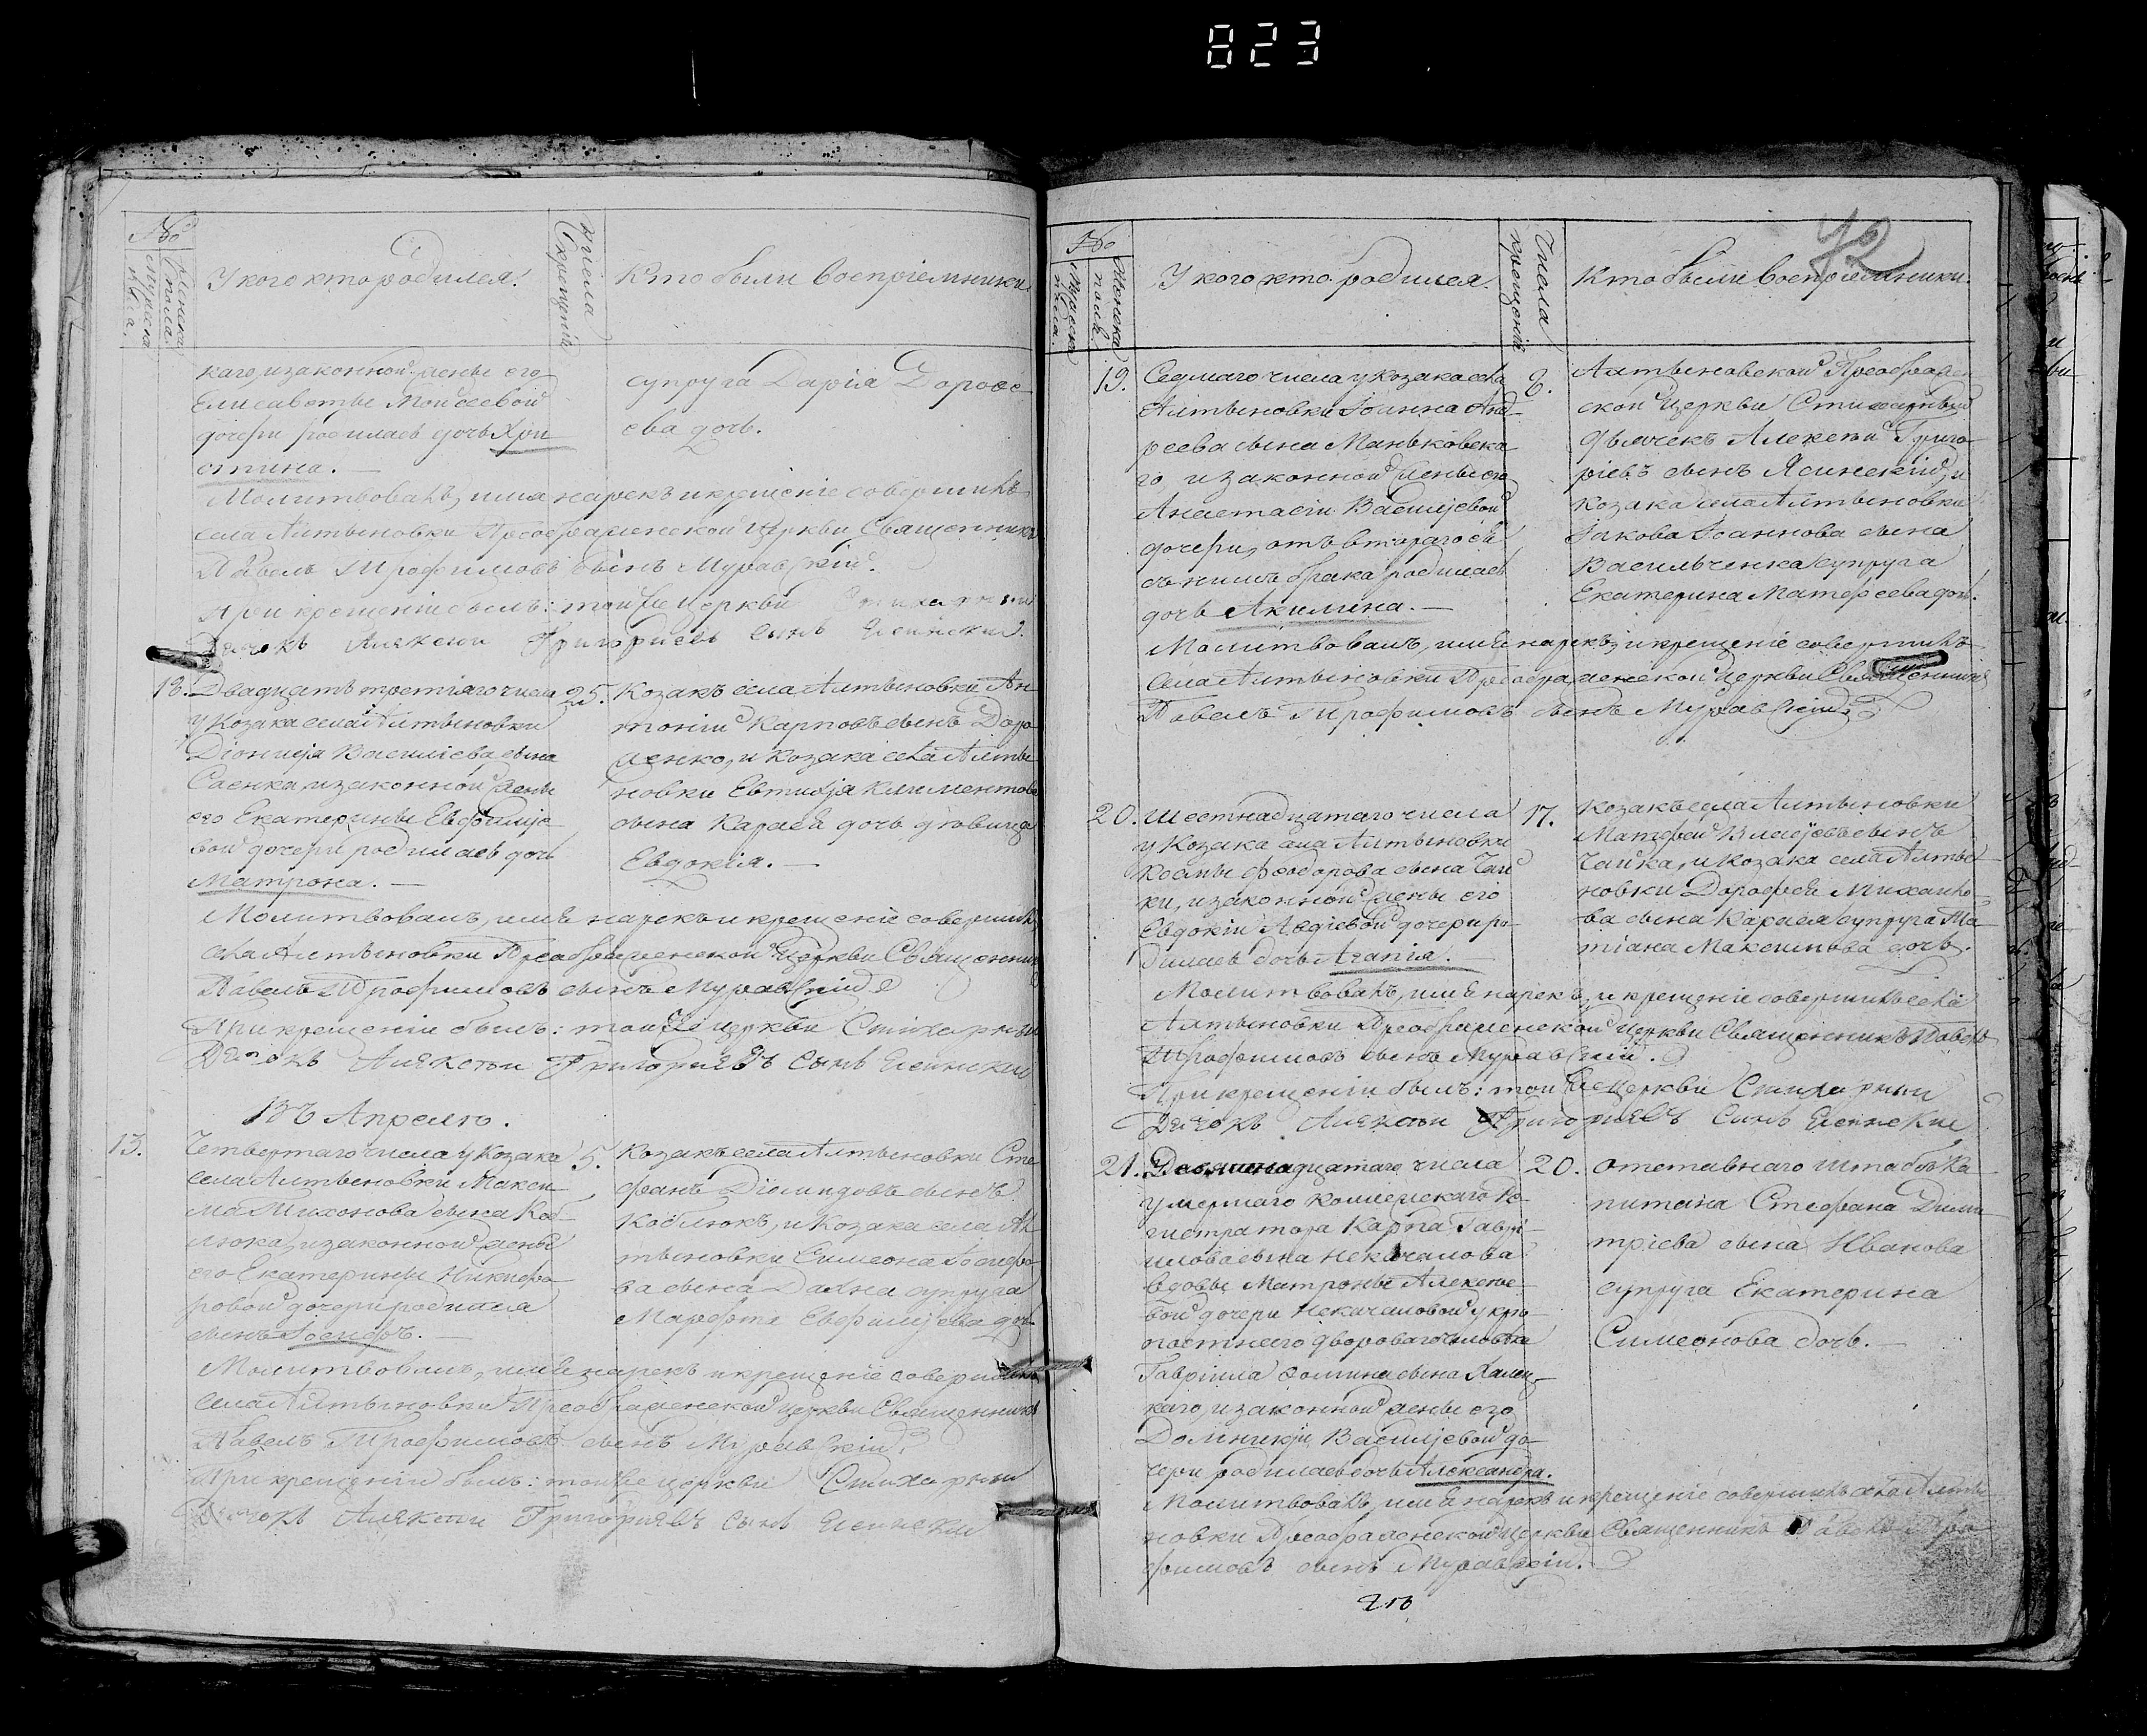 823
№
Мужеска пола.
Женска пола.
У кого кто родился.
Числа крещенія
Кто были воспріемники
каго, изаконной жены его
Елисаветы Моисеевой
дочери родилась дочь Хри
стина.
супруга Дарія Дорофе
ева дочь.
Молитвовалъ, имя нарекъ и крещеніе совершилъ
села Алтыновки Преображенской Церкви Священникъ
Павелъ Трофимовъ сынъ Муравскій.
При крещеніи былъ: той же церкви Стихарный
Дячокъ Алексей Григориевъ сынъ Ясинский.
18. Двадцать третіяго числа
у Козака села Алтыновки
Діонисія Василіева сына
Саенка, изаконной жены
его Екатерины Евфиміе
вой дочери родилась дочь
Матрона.
25. Козакъ села Алтыновки Ан
тоній Карповъ сынъ Доро
женко, и Козака села Алты
новки Евтихія Климентова
сына Карася дочь девица
Евдокія.
Молитвовалъ, имя нарекъ и крещеніе совершилъ
села Алтыновки Преображенской Церкви Священникъ
Павелъ Трофимовъ сынъ Муравскій
При крещеніи былъ: той же церкви Стихарный
Дячокъ Алексей Григориевъ сынъ Ясинский
Въ Апрелѣ.
13. Четвертаго числа у Козака
села Алтыновки Макси
ма Тихонова сына Коб
люка, изаконной жены
его Екатерины Никифо
ровой дочери родился
сынъ Іосифъ.
5. Козакъ села Алтыновки Сте
фанъ Діомидовъ сынъ
Коблюкъ, и Козака села Ал
тыновки Симеона Іосифо
ва сына супруга
Марфа Евфиміева дочь.
Молитвовалъ, имя нарекъ и крещеніе совершилъ
села Алтыновки Преображенской церкви Священникъ
Павелъ Трофимовъ сынъ Муравскій.
При крещеніи былъ: той же церкви Стихарный
Дячокъ Алексей Григориевъ сынъ Ясинский
72
№
Мужеска пола.
Женска пола.
У кого кто родился.
Числа крещенія
Кто были воспріемники.
19. Седмаго числа у Козака села
Алтыновки Іоанна Анд
реева сына Маньковска
го, изаконной жены его
Анастасіи Василіевой
дочери, отъ втораго ей
съ нимъ брака родилась
дочь Акилина.
8. Алтыновской Преображен
ской Церкви Стихарный
Дьячекъ Алексѣй Григо
ріевъ сынъ Ясинскій, и
Козака села Алтыновки
Іакова Іоаннова сына
Васильченка супруга
Екатерина Матфеева дочь.
Молитвовалъ, имя нарекъ, и крещеніе совершилъ
села Алтыновки Преображенской Церкви Священникъ
Павелъ Трофимовъ сынъ Муравскій
20. Шестнадцатаго числа
у Козака села Алтыновки
Космы Феодорова сына Чай
ки, изаконной жены его
Евдокіи Авдіевой дочери ро
дилась дочь Агапія.
17. Козакъ села Алтыновки
Матфей Власіевъ сынъ
Чайка, и Козака села Алты
новки Дорофея Михайло
ва сына Карася супруга Та
тіана Максимова дочь.
Молитвовалъ, имя нарекъ, и крещеніе совершилъ села
Алтыновки Преображенской Церкви Священникъ Павелъ
Трофимовъ сынъ Муравскій.
При крещеніи былъ: той же Церкви Стихарный
Дячокъ Алексей Григориевъ сынъ Ясинский
21. Девятнадцатаго числа
умершаго Коллежскаго Ре
гистратора Карпа Гаврі
илова сына Некачалова
вдовы Матроны Алексѣе
вой дочери Некачаловой у крѣ
постнаго двороваго человѣка
Гавріила Фомина сына Хален
каго, изаконной жены его
Домникіи Василіевой до
чери родилась дочь Александра.
20. Отставнаго Штабсъ Ка
питана Стефана Дими
тріева сына Иванова
супруга Екатерина
Симеонова дочь.
Молитвовалъ, имя нарекъ и крещеніе совершилъ села Алты
новки Преображенской Церкви Священникъ Павелъ Тро
фимовъ сынъ Муравскій.